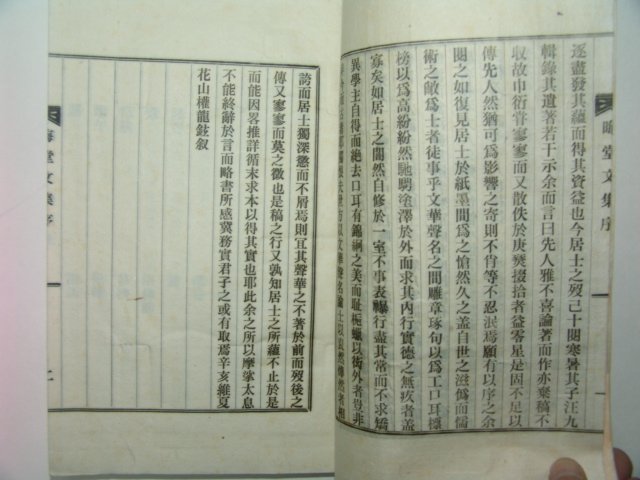 逐盡發其蘊而得其資益也今居士之歿已十閱寒暑其子汪九
輯錄其遺著若干示余而言曰先人雅不喜論著而作亦棄稿不
收故巾衍者寥寥而又散佚於庚燹掇拾者益零星是固不足以
傳先人然猶可爲影響之寄則不肖等不忍泯焉願有以序之余
閱之如復見居士於紙墨間爲之愴然久之盖自世之
爲而儒
術之敵爲士者徒事乎文華聲名之間雕章琢句以爲工口耳標
榜以爲高紛紛然馳騁塗澤於外而求其內行實德之無疚者盖
寡矣如居士之闇然自修於一室不事表襮行盡其常而不求矯
異學主自得而絶去口耳有錦褧之美而耻梔蠟以衒外者豈非
世方以文華聲名論士
誇而居士獨深懲而不屑焉則宜其聲華之不著於前而歿後之
傳又寥寥而莫之徵也是稿之行又孰知居士之所蘊不止於是
而能因畧推詳循末求本以得其實也耶此余之所以摩挲太息
不能終辭於言而略書所感冀務實君子之或有取焉辛亥維夏
花山權龍鉉叙
晦堂文集序
晦堂文集序
二